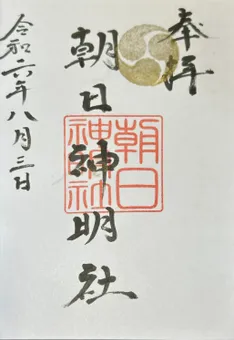 奉拝
朝日神明社
朝日
神明社
令和六年八月三日